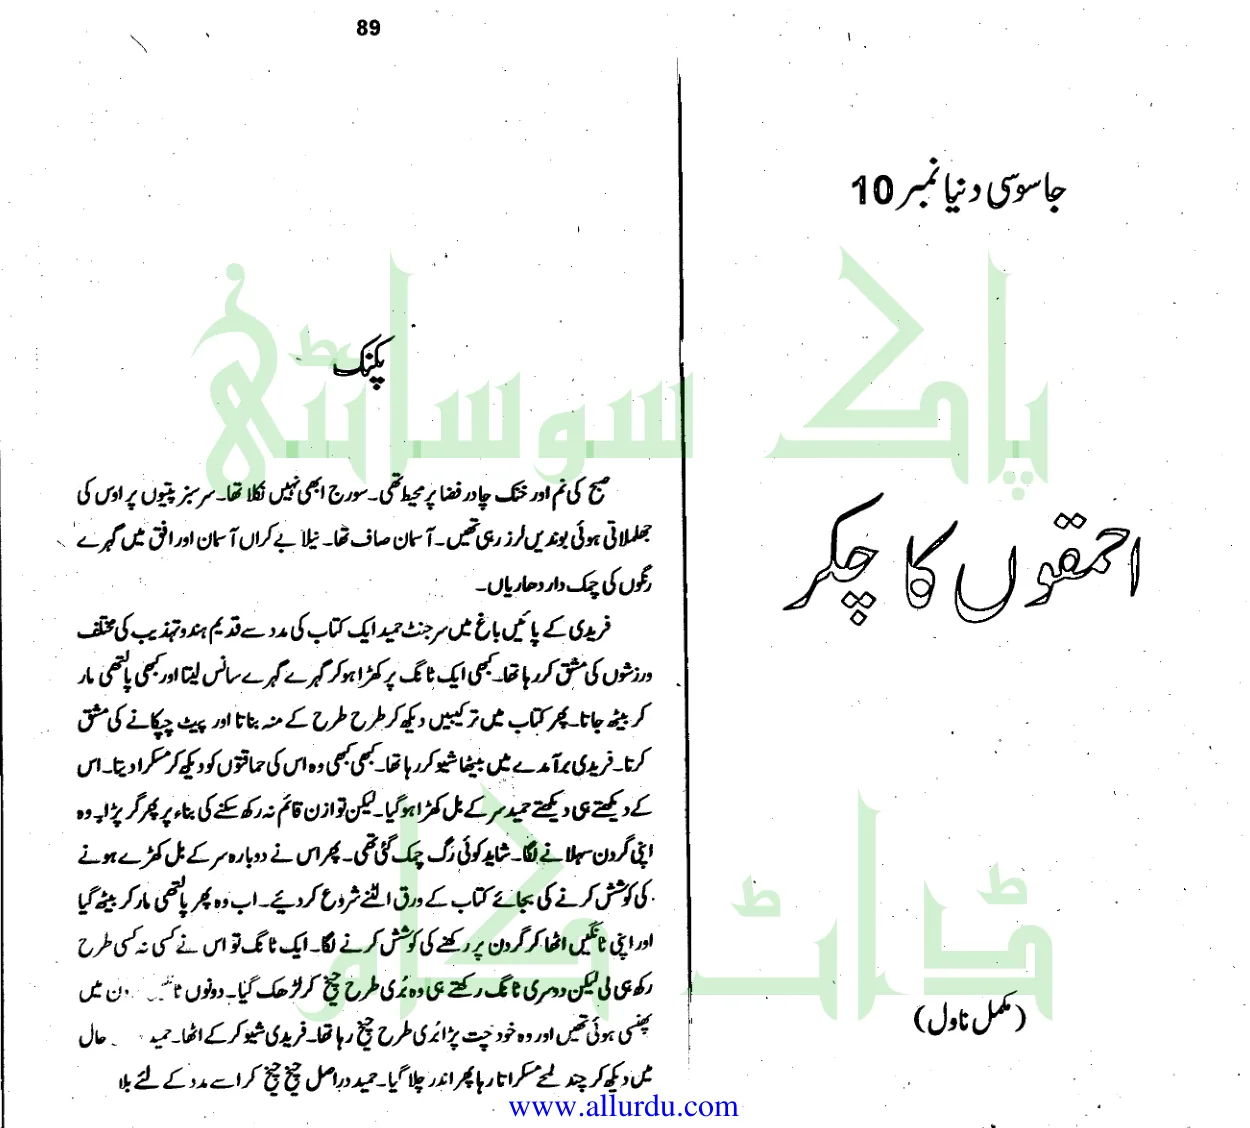 جاسوسی دنیا نمبر 10
احمقوں کا چکر
(مکمل ناول)
89
پکنک
صبح کی نم اور خنک چادر فضا پر محیط تھی۔ سورج ابھی نہیں نکلا تھا۔ سرسبز پتیوں پر اوس کی
جھلملاتی ہوئی بوندیں لرز رہی تھیں۔ آسمان صاف تھا۔ نیلا بے کراں آسمان اور افق میں گہرے
رنگوں کی چمک دار دھاریاں۔
فریدی کے پائیں باغ میں سرجنٹ حمید ایک کتاب کی مدد سے قدیم ہندو تہذیب کی مختلف
ورزشوں کی مشق کر رہا تھا۔ کبھی ایک ٹانگ پر کھڑا ہو کر گہرے گہرے سانس لیتا اور کبھی پالتھی مار
کر بیٹھ جاتا۔ پھر کتاب میں ترکیبیں دیکھ کر طرح طرح کے منہ بناتا اور پیٹ چپکانے کی مشق
کرتا۔ فریدی برآمدے میں بیٹھا شیو کر رہا تھا۔ کبھی کبھی وہ اس کی حماقتوں کو دیکھ کر مسکرا دیتا۔ اس
کے دیکھتے ہی دیکھتے حمید سر کے بل کھڑا ہو گیا۔ لیکن توازن قائم نہ رکھ سکنے کی بناء پر پھر گر پڑا۔ وہ
اپنی گردن سہلانے لگا۔ شاید کوئی رگ چمک گئی تھی۔ پھر اس نے دوبارہ سر کے بل کھڑے ہونے
کی کوشش کرنے کی بجائے کتاب کے ورق الٹنے شروع کر دیئے۔ اب وہ پھر پالتھی مار کر بیٹھ گیا
اور اپنی ٹانگیں اٹھا کر گردن پر رکھنے کی کوشش کرنے لگا۔ ایک ٹانگ تو اس نے کسی نہ کسی طرح
رکھ ہی لی لیکن دوسری ٹانگ رکھتے ہی وہ بُری طرح چیخ کر لڑھک گیا۔ دونوں میں
پھنسی ہوئی تھیں اور وہ خود چت پڑا بُری طرح چیخ رہا تھا۔ فریدی شیو کر کے اٹھا۔ حمید حال
میں دیکھ کر چند لمحے مسکراتا رہا پھر اندر چلا گیا۔ حمید دراصل چیخ چیخ کر اسے مدد کے لئے بلا
پاک سوسائٹی
ڈاٹ کام
www.allurdu.com